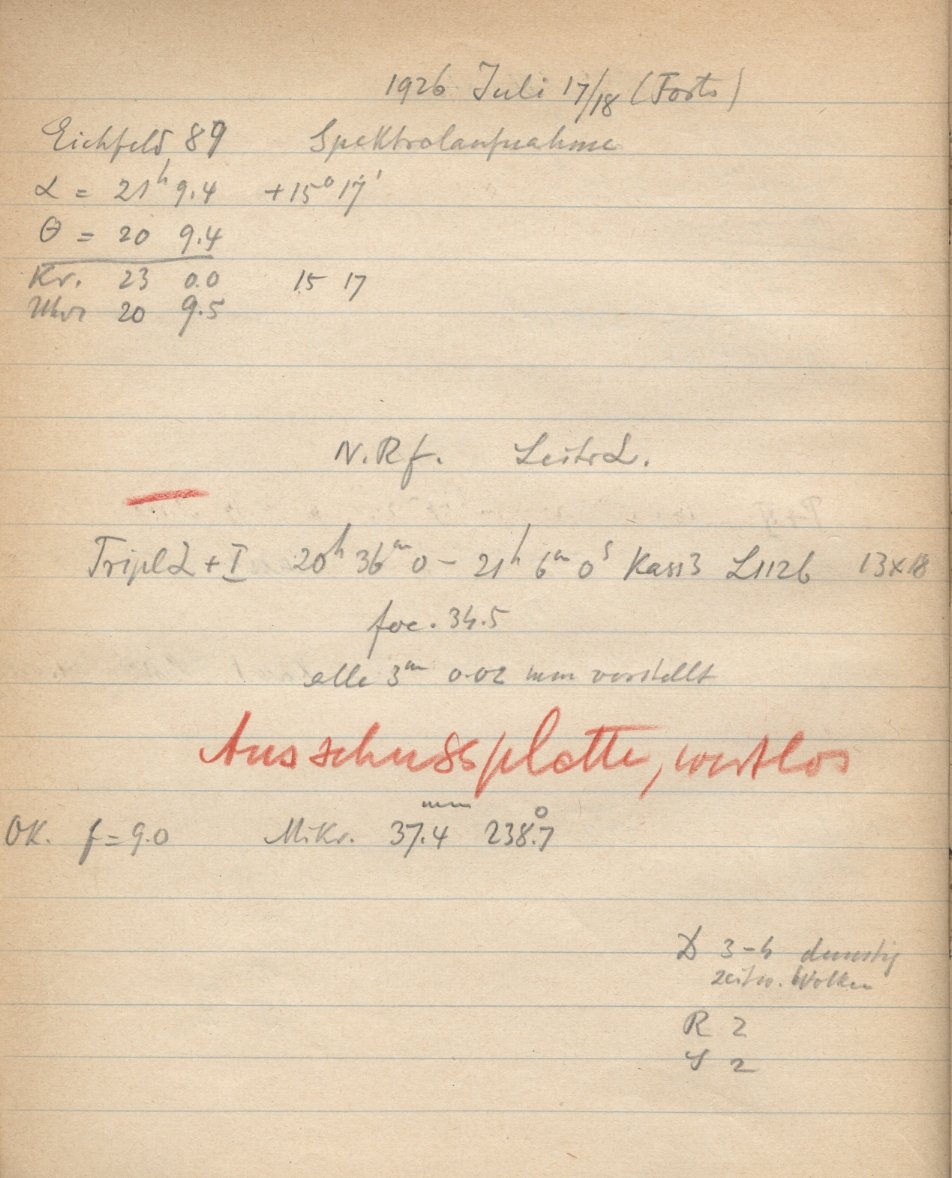 1926 Juli 17/18 (Forts)
Eichfeld 89 Spektralaufnahme
α = 21h 9.4 +15° 17'
θ = 20 9.4
Kr. 23 0.0 15 17
Uhr 20 9.5
N.Rf. Leitr L.
Tripl L + I 20h 36m 0 – 21h 6m 0s Kass 3 L1126 13x18
foc. 34.5
alle 3m 0.02 mm verstellt
Ausschussplatte, wertlos
OK. f = 9.0 Mikr. 37.4 mm 238.7°
D 3–4 dunstig
zeitw. Wolken
R 2
S 2